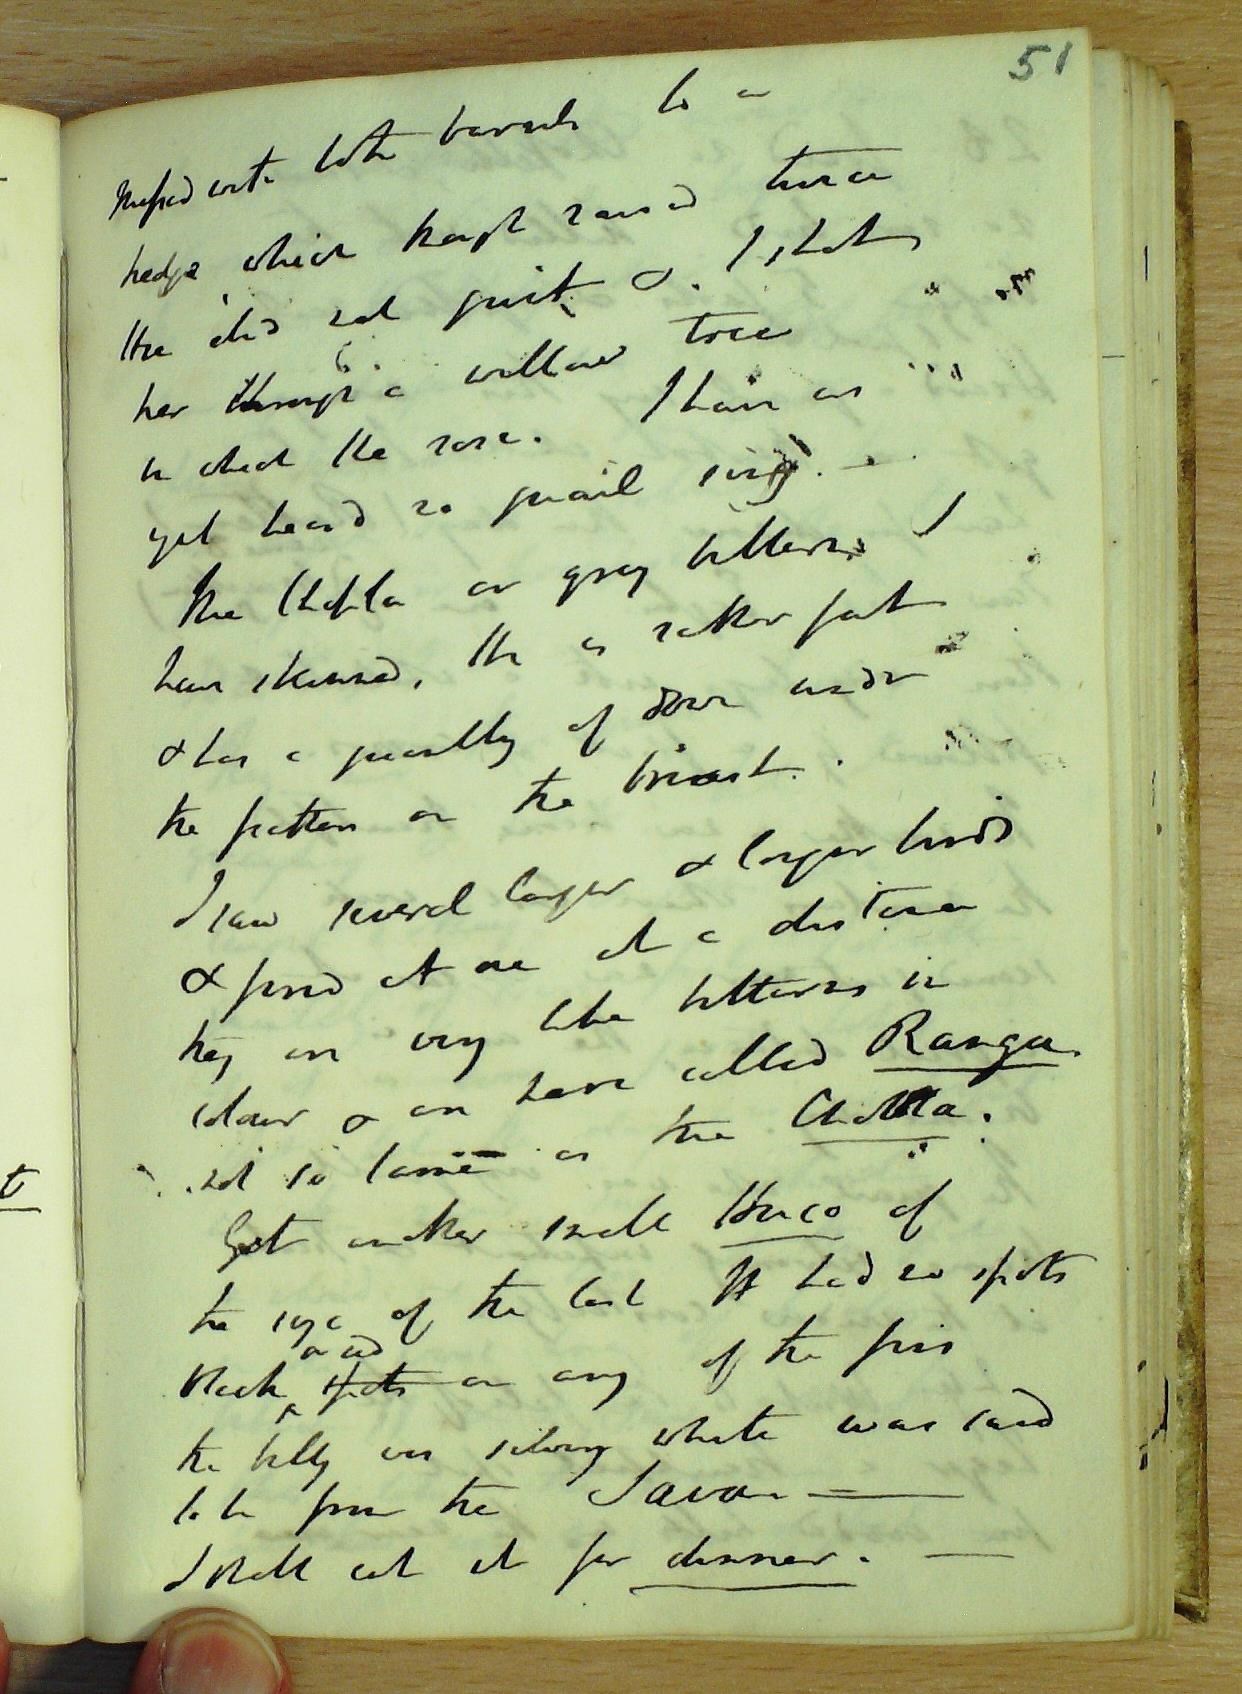 51
missed with both barrels to a
hedge which though raised twice
she did not quit & I shot
her through a willow tree
in which she rose. I have as
yet heard no quail sing. —
The Chiofta or grey bittern I
have skinned, she is rather fat
& has a quantity of down under
the feathers on the breast.
I saw several larger & larger birds
& fired at one at a distance
they are very like bitterns in
colour & are here called Ranga
not so tame as the Chiofta.
Got another small Huco of
the size of the last It had no spots
black or red spots on any of the fins
the belly was silvery white was said
to be from the Sava —
I shall eat it for dinner. —
t